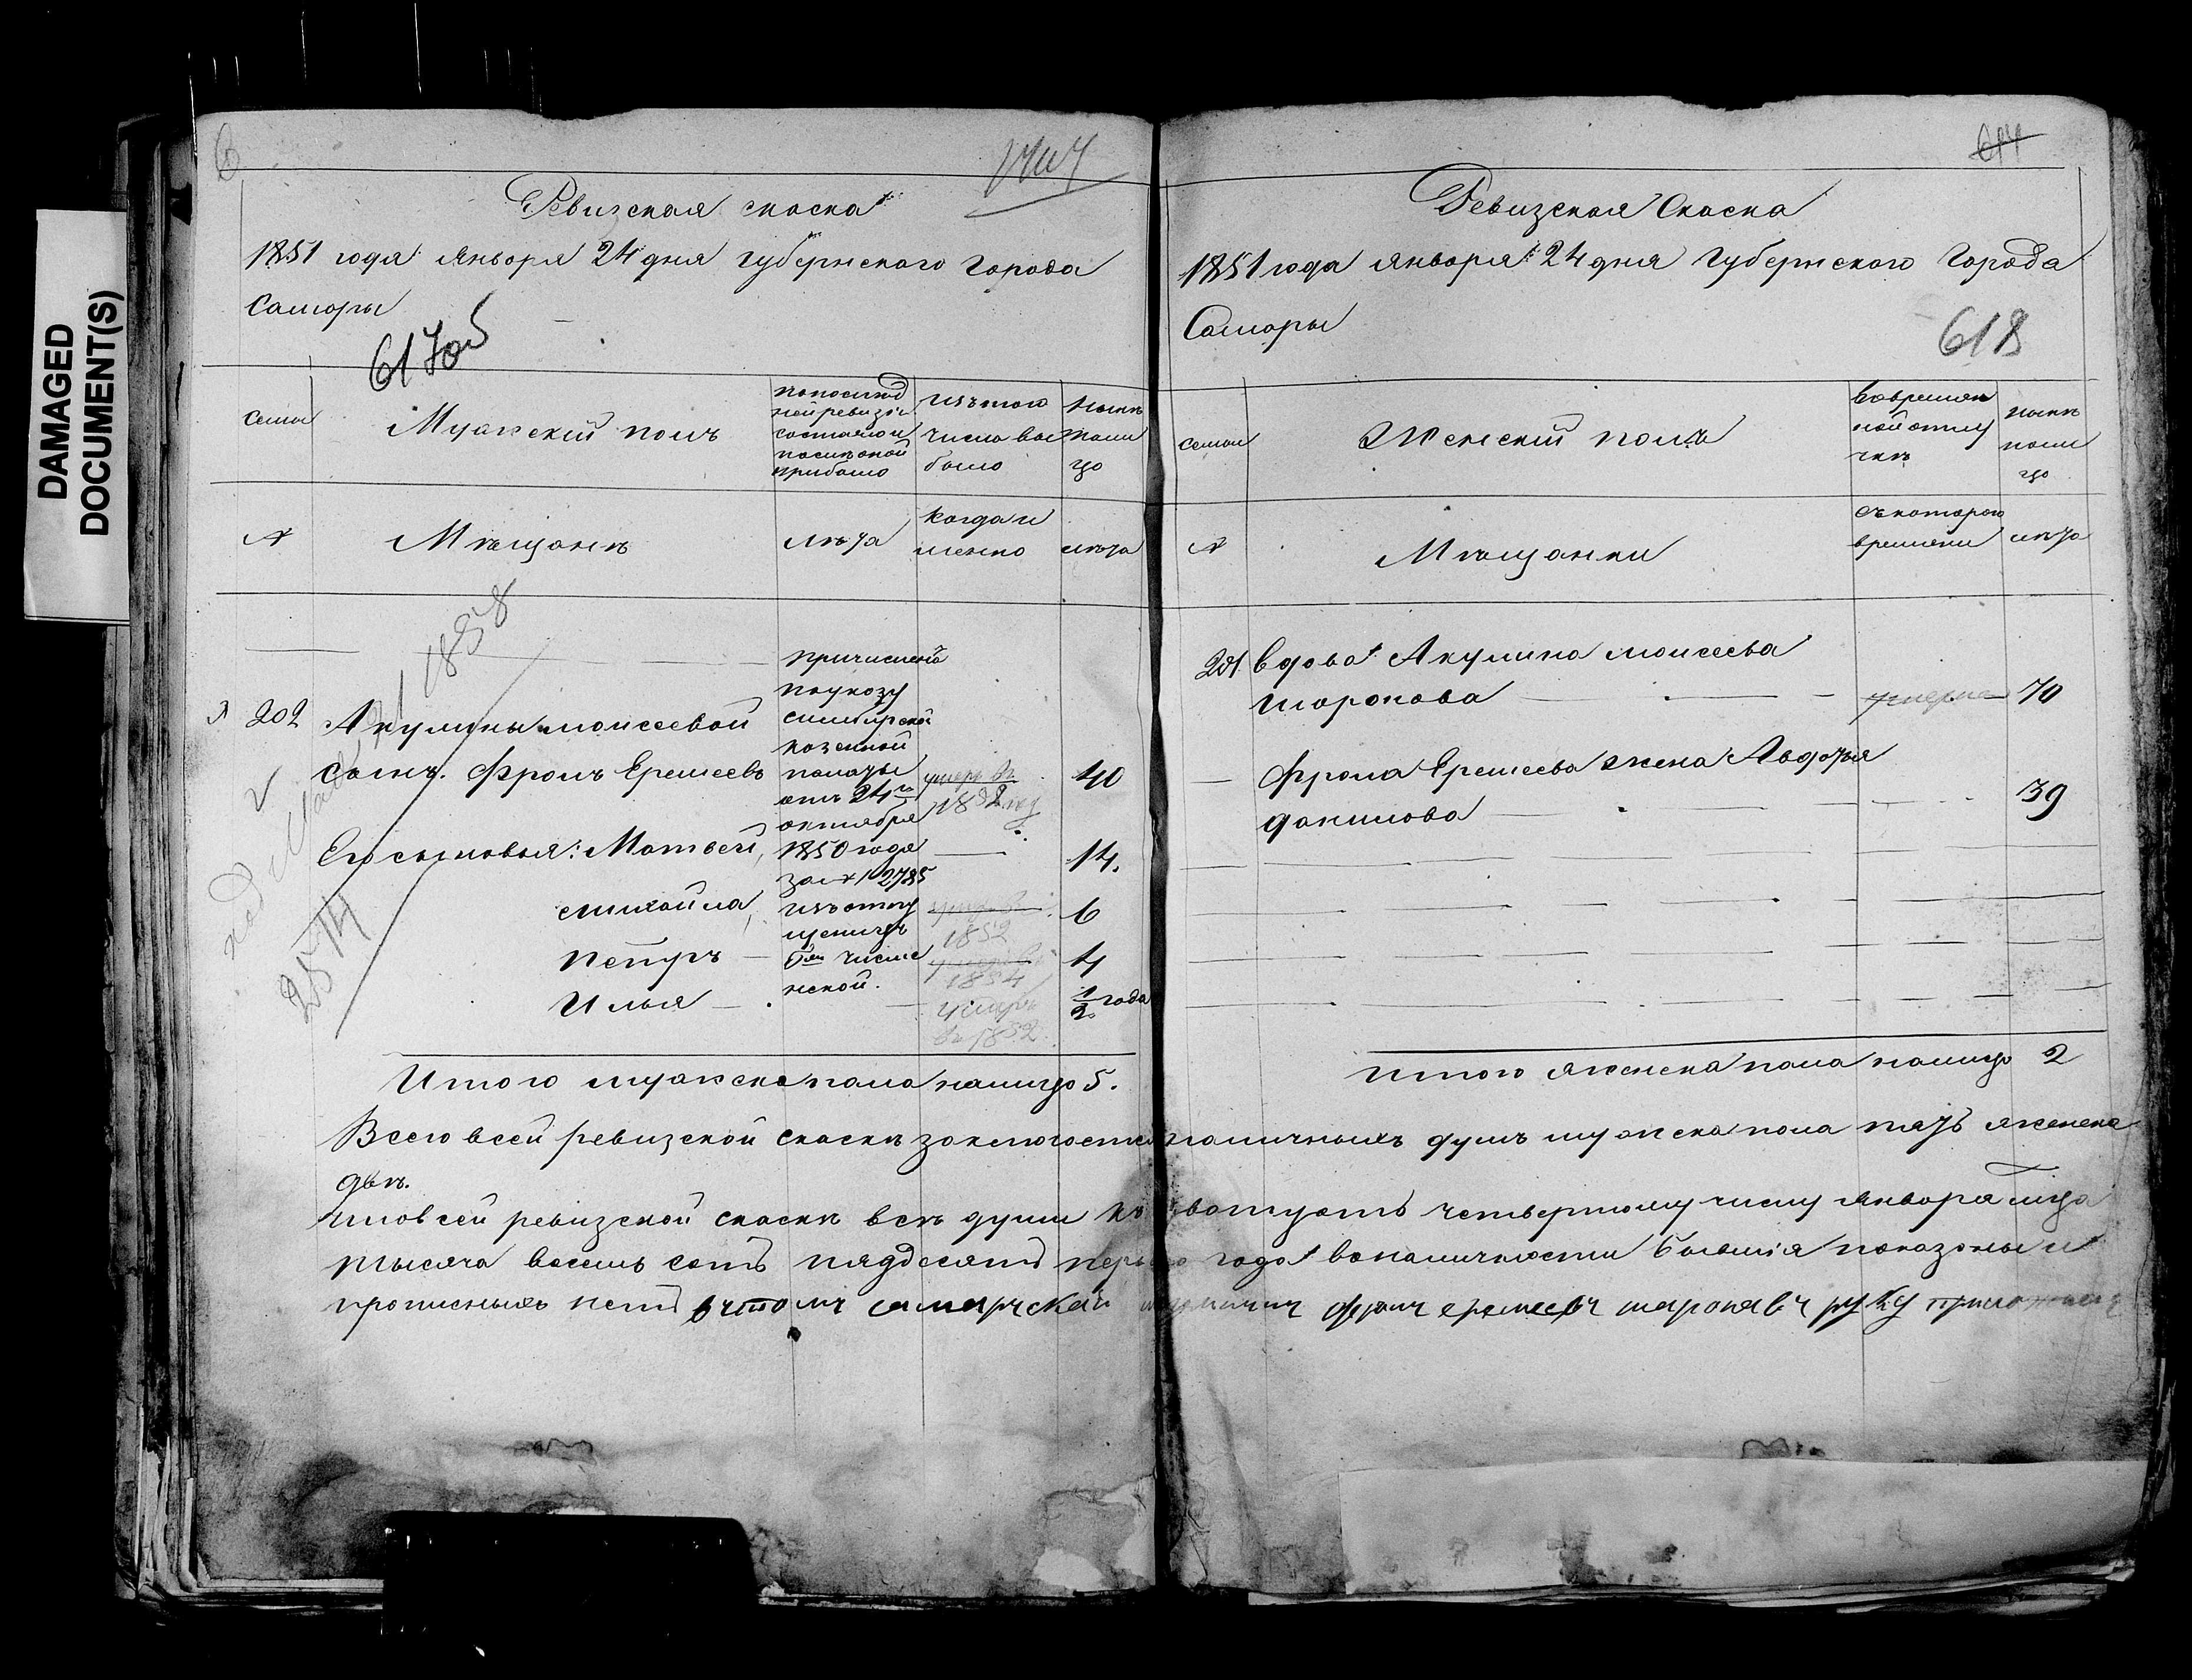 DAMAGED
DOCUMENT(S)
6
Ревизская скаска
1851 года Января 24 дня губернского города
Самары
617об
семьи
Мужский полъ
По послед
ней ревизіи
состояло и
после оной
прибыло
Изъ того
числа вы
было
Ныне
нали
цо
№
Мещане
лета
Когда и
менно
лета
1858
202
Акулины Моисеевой
сынъ Фролъ Еремеевъ
причислены
по указу
симбирской
казенной
палаты
отъ 24го
октября
1850 года
за № 12785
изъ отпу
щениц
умеръ въ
40
Его сыновья: Матвей,
14.
Михайла,
1852
6
Петръ
1854
4
Илья
умеръ
въ 1852.
1/2 года
Итого мужска пола налицо 5.
614
Ревизская Скаска
1851 года января 24 дня Губернского Города
Самары
618
семьи
Женскій полъ
Во времян
ной отлу
чке
ныне
нали
цо
№
Мещанки
съ которого
времяни
лета
вдова Акулина Моисеева
Шаронова
умерла
70
Фрола Еремеева жена Авдотья
Данилова
39
Итого женска пола налицо 2
Всего в сей ревизской скаске заключается наличныхъ душъ мужска пола пять женска
две.
что в сей ревизской скаске все души къ дватцать четвертому числу января м-ца
тысяча восемь сотъ пядесятъ перваго года в наличности бывшія показаны и
прописныхъ нетъ в чтомъ самарскай мещининъ фролъ еремеевъ шароняевъ руку приложилъ